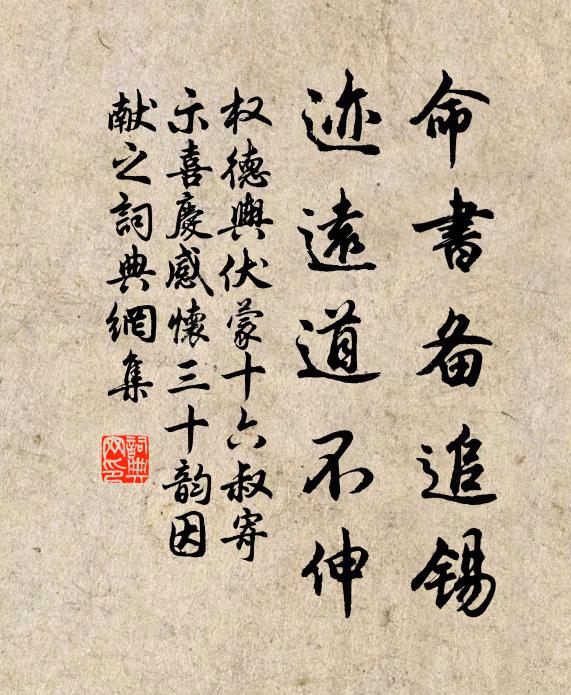 命書备追锡
迹遠道不伸
权德舆伏蒙十六叔寄
示喜慶感懷三十韵因
献之詞典網集
詞典
网印